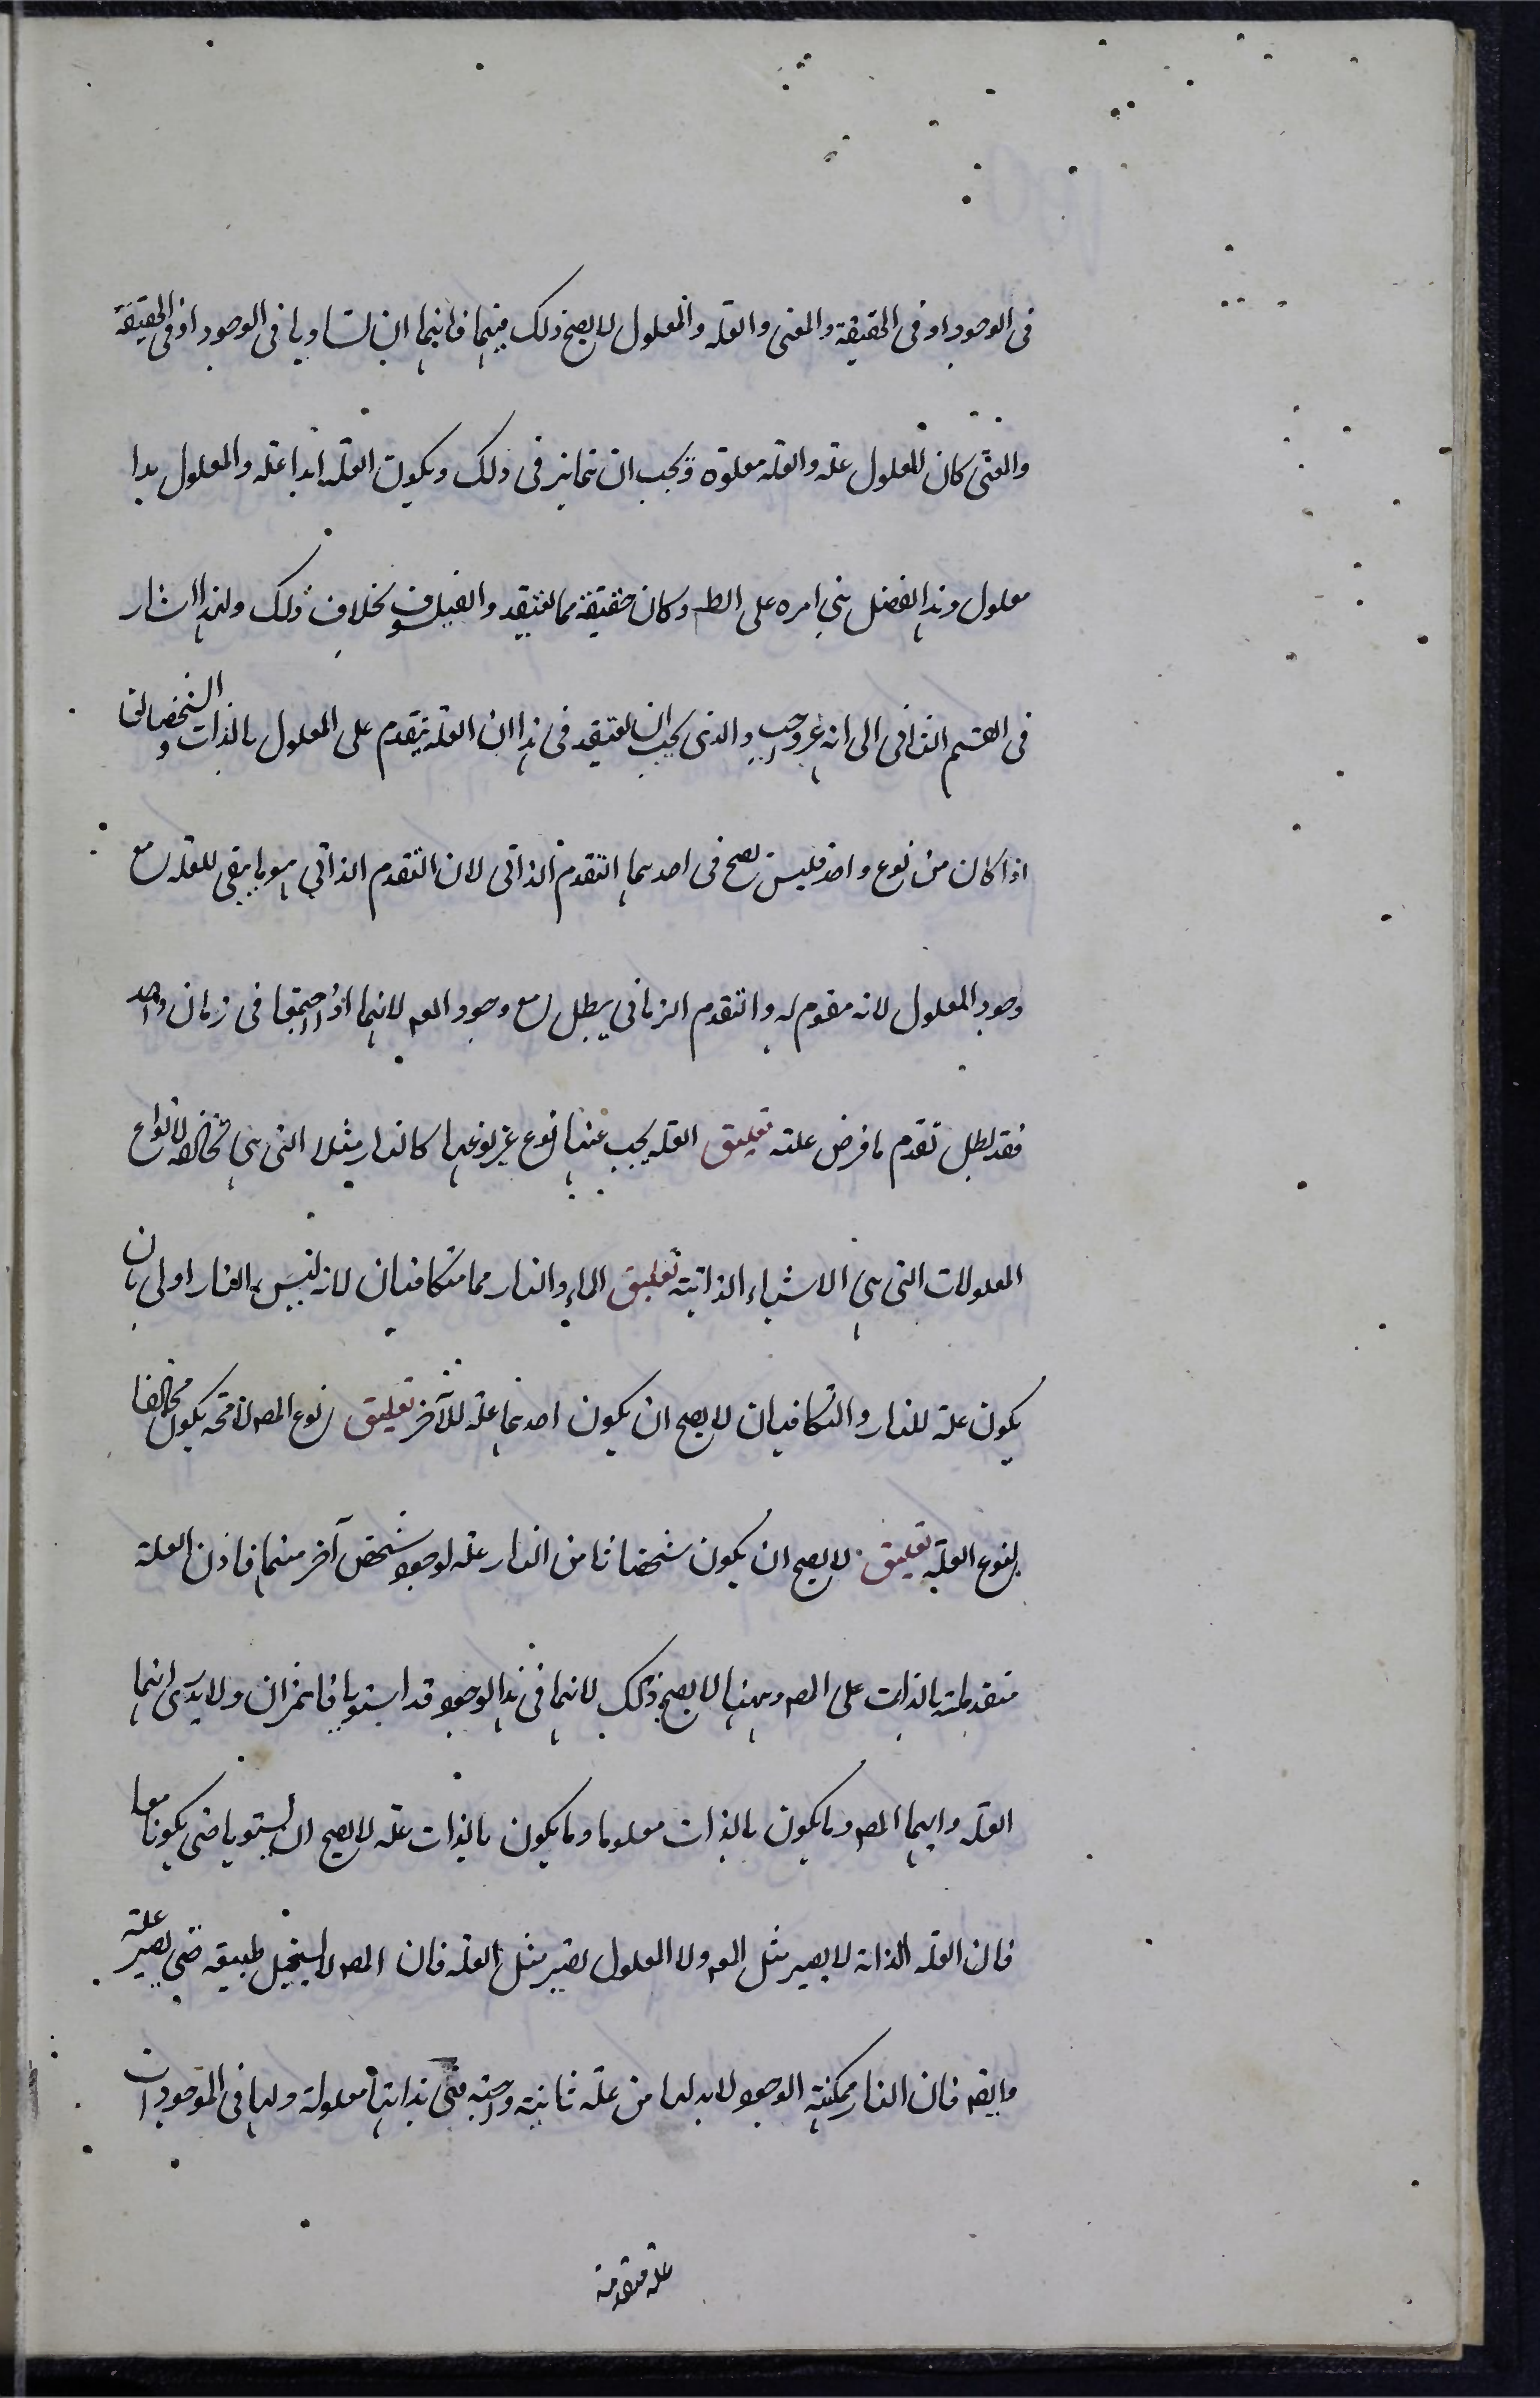 فى الوجود او فى الحقيقة والمعنى والعلة والمعلول لا يصح ذلك فيهما فانهما ان تساويا فى الوجود او فى الحقيقة
والمعنى كان المعلول علة والعلة معلولة ويجب ان تمايز فى ذلك ويكون العلة ابدا علة والمعلول ابدا
معلول وهذا الفصل بنى امره على الظ وكان حقيقة مما يعتقد والفيلسوف بخلاف ذلك ولهذا اشار
فى القسم الثانى الى انه غير واجب والذى يجب ان يعتقد فى هذا ان العلة يتقدم على المعلول بالذات والشخصان
اذا كان من نوع واحد فليس يصح فى احدهما التقدم الذاتى لان التقدم الذاتى هو ما يبقى للعلة مع
وجود المعلول لانه مقوم له والتقدم الزمانى يبطل مع وجود المعه لانهما اذا اجتمعا فى زمان واحد
فقد بطل تقدم ما فرض علة تعليق العلة يجب عنها نوع غير نوعها كالنار مثلا التى هى مخالفة لانواع
المعلولات التى هى الاشياء الذاتية تعليق الماء والنار مما متكافئان لانه ليس النار اولى بان
يكون علة للنار والمتكافئان لا يصح ان يكون احدهما علة للآخر تعليق نوع المعه لامحة يكون مخالفا
لنوع العلة تعليق لا يصح ان يكون شخصا نا من النار علة لوجود شخص آخر منهما فاذن العلة
متقدمة بالذات على المعه وههنا لا يصح ذلك لانهما فى هذا الوجود قد استويا فانهما نران ولا يدرى ايهما
العلة وايهما المعه وما يكون بالذات معلولا وما يكون بالذات علة لا يصح ان يستويا حتى يكونا معا
فان العلة الذاتية لا يصير مثل المعه ولا المعلول يصير مثل العلة فان المعه لا يستحيل طبيعته حتى يصير علة
وايضه فان النار ممكنة الوجود لا بد لها من علة ثانية واجبة فهى بذاتها معلولة ولها فى الموجودات
علة متقدمة